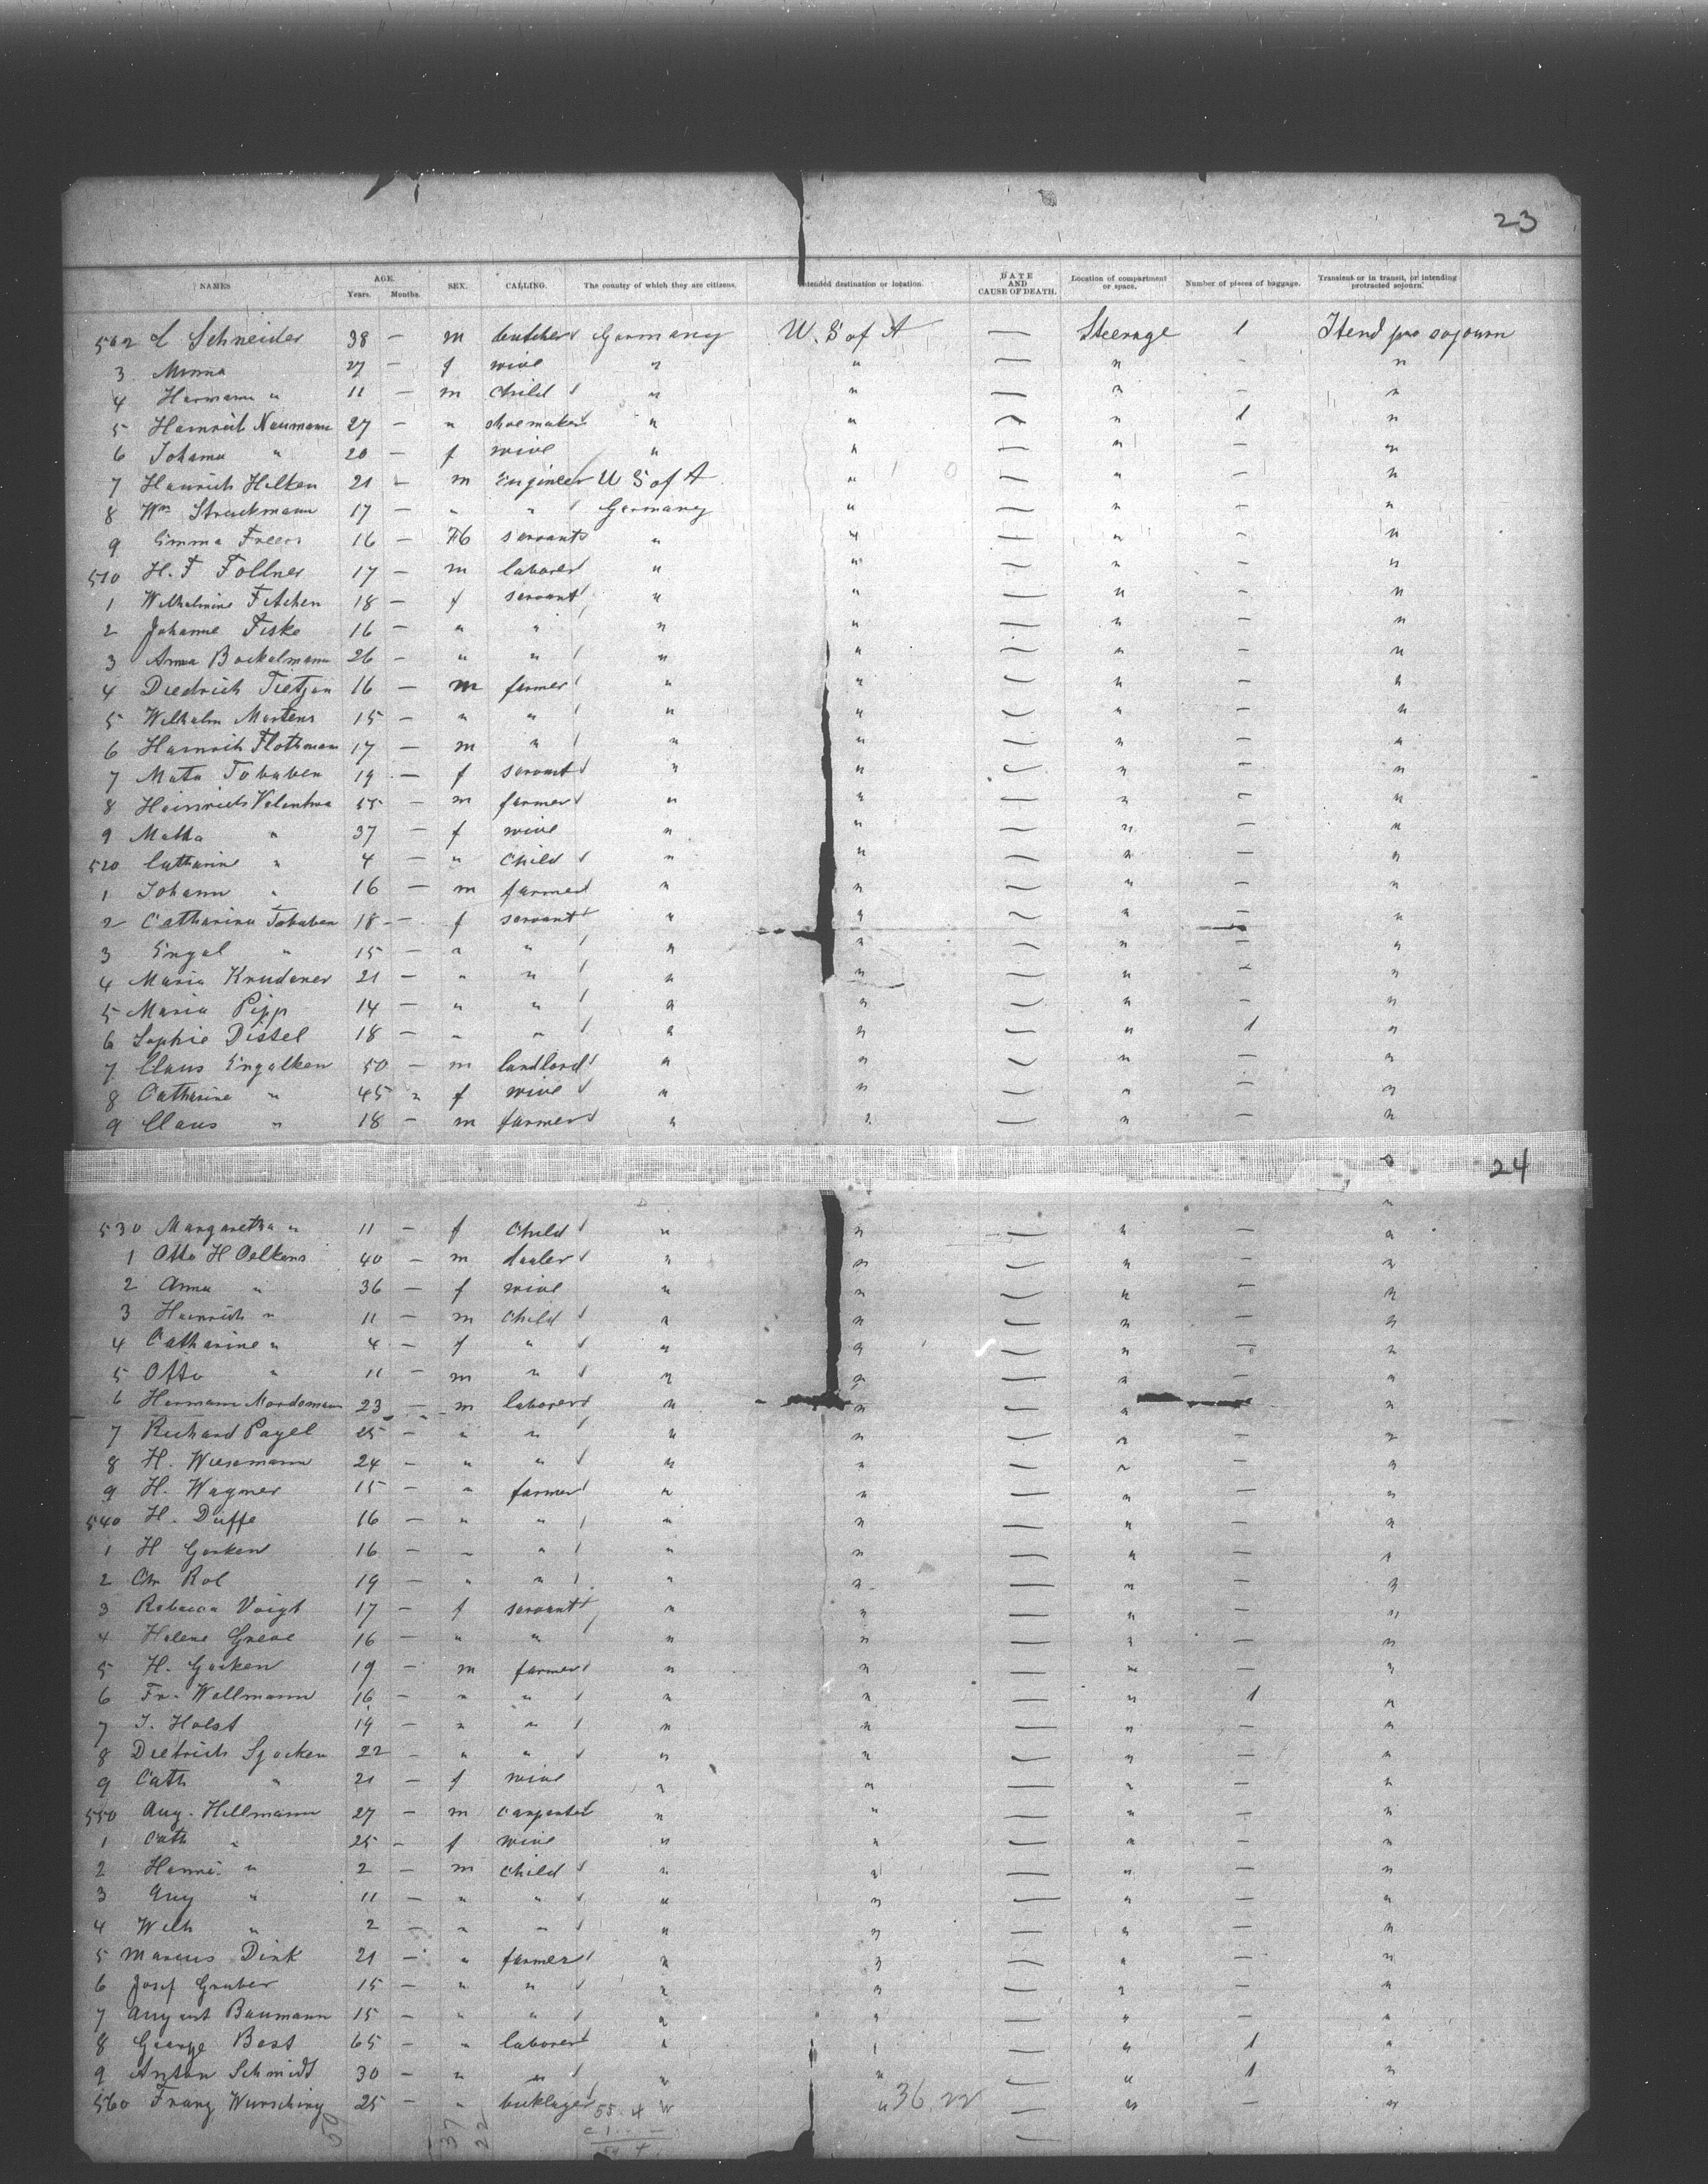 23
NAMES AGE. Years. Months. SEX. CALLING. The country of which they are citizens. Intended destination or location. DATE AND CAUSE OF DEATH. Location of compartment or space. Number of pieces of baggage. Transient or in transit, or intending protracted sojourn.
502 L Schneider 38 — m butcher Germany W. S of A — Steerage 1 Itend pro sojourn
3 Minna 27 — f wive " " — " - "
4 Hermann " 11 — m Child " " — " — "
5 Heinrich Naumann 27 — " shoemaker " " — " 1 "
6 Johanna " 20 — f wive " " — " — "
7 Heinrich Hilken 21 — m Engineer U S of A " — " — "
8 Wm Struckmann 17 — " " Germany " — " — "
9 Emma Freers 16 — servant " " — " — "
510 H. F Follner 17 — m laborer " " — " — "
1 Wilhelmine Fitschen 18 — f servant " " — " — "
2 Johanne Fiske 16 — " " " " — " — "
3 Anna Bockelmann 26 — " " " " — " — "
4 Diedrich Tietjen 16 — m farmer " " — " — "
5 Wilhelm Martens 15 — " " " " — " — "
6 Heinrich Flothmann 17 — m " " " — " — "
7 Meta Tobaben 19 — f servant " " — " — "
8 Heinrich 55 — m farmer " " — " — "
9 Metha " 37 — f wive " " — " — "
520 Catharine " 4 — " Child " " — " — "
1 Johann " 16 — m farmer " " — " — "
2 Catharina Tobaben 18 — f servant " " — " — "
3 Engel " 15 — " " " " — " — "
4 Maria Krudener 21 — " " " " — " — "
5 Maria Pipp 14 — " " " " — " — "
6 Sophie Distel 18 — " " " " — " 1 "
7 Claus Engelken 50 — m landlord " " — " — "
8 Catharine " 45 " f wive " " — " — "
9 Claus " 18 — m farmer " " — " — "
24
530 Margaretha " 11 — f Child " " — " — "
1 Otto H Oelkers 40 — m dealer " " — " — "
2 Anna " 36 — f wive " " — " — "
3 Heinrich " 11 — m Child " " — " — "
4 Catharine " 4 — f " " " — " — "
5 Otto " 11 — m " " " — " — "
6 Hermann 23 — m laborer " " — " — "
7 Richard Pagel 25 — " " " " — " — "
8 H. Wiesemann 24 — " " " " — " — "
9 H. Wagner 15 — " farmer " " — " — "
540 H. Duffe 16 — " " " " — " — "
1 H Gerken 16 — " " " " — " — "
2 Chr Rol 19 — " " " " — " — "
3 Rebecca Voigt 17 — f servant " " — " — "
4 Helene Greve 16 — " " " " — " — "
5 H. Gerken 19 — m farmer " " — " — "
6 Fr. Wellmann 16 — " " " " — " 1 "
7 J. Holst 19 — " " " " — " — "
8 Dietrich 22 — " " " " — " — "
9 Cath " 21 — f wive " " — " — "
550 Aug. Hillmann 27 — m Carpenter " " — " — "
1 Cath " 25 — f wive " " — " — "
2 " 2 — m Child " " — " — "
3 Aug " 11 — " " " " — " — "
4 Wilh " 2 — " " " " — " — "
5 Marcus Dink 21 — " farmer " " — " — "
6 Josef Gruber 15 — " " " " — " — "
7 August Baumann 15 — " " " " — " — "
8 George Best 65 — " laborer " " — " 1 "
9 Anton Schmidt 30 — " " " " — " 1 "
560 Franz Wursching 25 — " " " — " — "